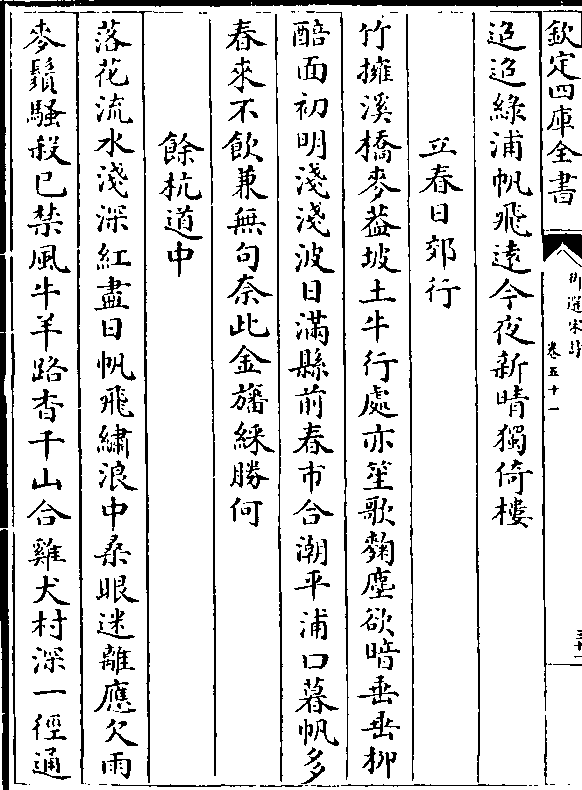 欽定四庫全書
御選宋詩
卷五十一
迢迢綠浦帆飛遠今夜新晴獨倚樓
立春日郊行
竹擁溪橋麥葢坡土牛行處亦笙歌麴塵欲暗垂垂柳
醅面初明淺淺波日滿縣前春市合潮平浦口暮帆多
春來不飲兼無句奈此金旛綵勝何
餘杭道中
落花流水淺深紅盡日帆飛繡浪中桑眼迷離應欠雨
麥鬚騷殺已禁風牛羊路杳千山合雞犬村深一徑通